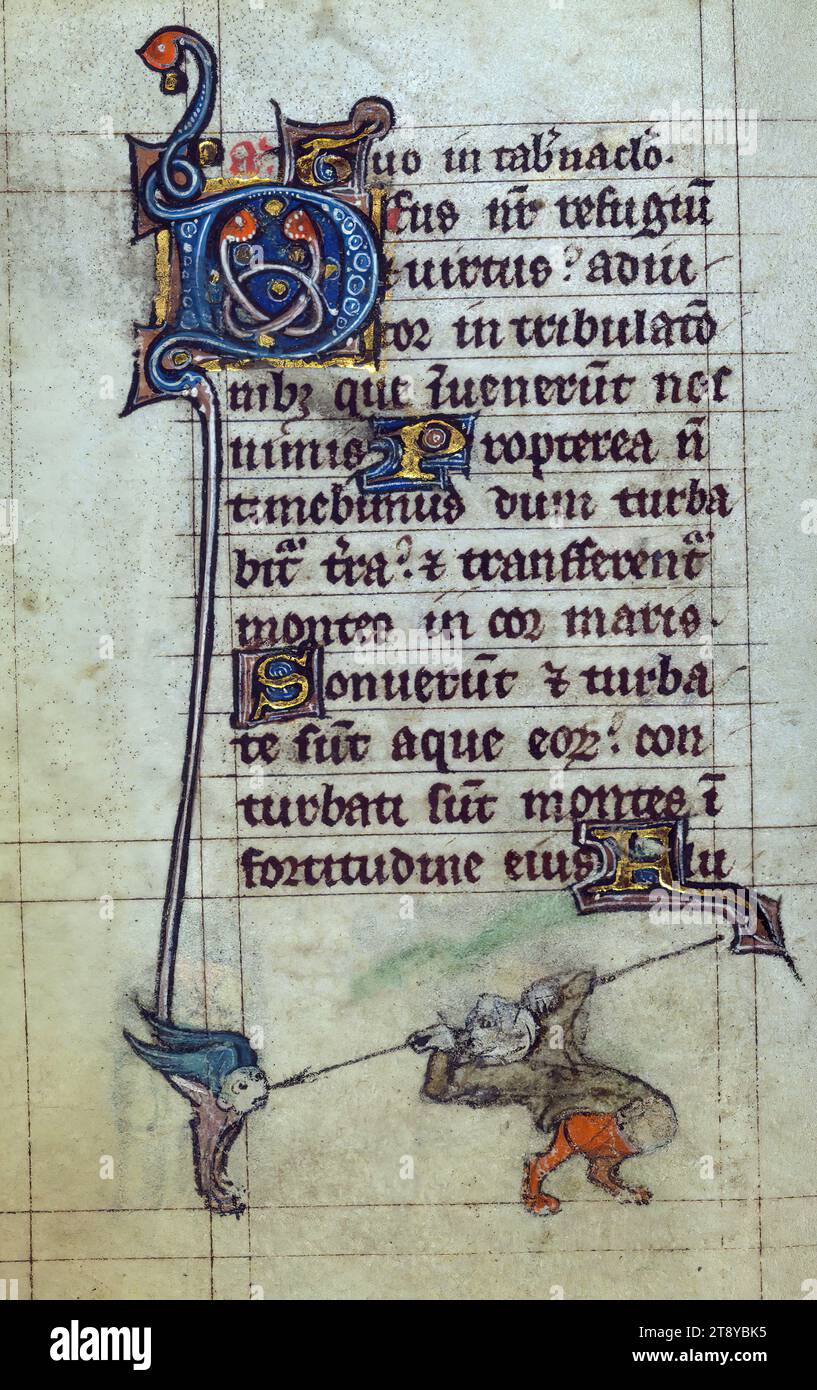 a̅. Tuo in tab̕naclo̅.
Deus nr̅ refugiu̅
et uirtus? adiu
tor in tribulato̅
nibꝫ que i̅ueneru̅t nos
nimis Propterea n̅
timebimus dum turba
bitᵃ t̅ra? ⁊ transferentᵃ
montes in cor maris.
Sonueru̅t ⁊ turba
te su̅t aque eoꝝ? con
turbati su̅t montes i̅
fortitudine eius Flu
alamy
Image ID: 2T8YBK5
www.alamy.com